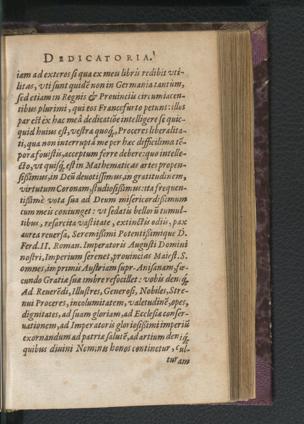 DEDICATORIA.
iam ad exteros si qua ex meo libris redibit vti-
litas, vti sunt quidē non in Germania tantum,
sed etiam in Regnis & Prouinciis circumiacen-
tibus plurimi, qui eos Francofurto petunt: illos
par est ex hac meâ dedicatiōe intelligere se quic-
quid huius est, vestra quoq́, Proceres liberalita-
ti, qua non interrupta me per hac difficilima tē-
pora fouistis, acceptum ferre debere: quo intelle-
cto, vt quisq́, est in Mathematicas artes propen-
sissimus, in Deū deuotissimus, in gratitudinem,
virtutum Coronam, studiosissimus: ita frequen-
tissimè vota sua ad Deum misericordissimum
cum meis contunget: vt sedatis bellorū tumul-
tibus, resarcita vastitate, extinctis odiis, pax
aurea reuersa, Serenissimi Potentissimique D.
Ferd. II. Roman. Imperatoris Augusti Domini
nostri, Imperium serenet, prouincias Maiest. S.
omnes, imprimis Austriam supr-Anisanam, fæ-
cundo Gratiæ suæ imbre refocillet: vobis deniq́,
Ad. Reuerēdi, Illustres, Generosi, Nobiles, Stre-
nui Proceres, incolumitatem, valetudinē, opes,
dignitates, ad suam gloriam, ad Ecclesiæ conser-
uationem, ad Imperatoris gloriosissimi imperiū
exornandum ad patriæ salutē, ad artium deniq́,
quibus diuini Nominis honos continetur, cul-
turam